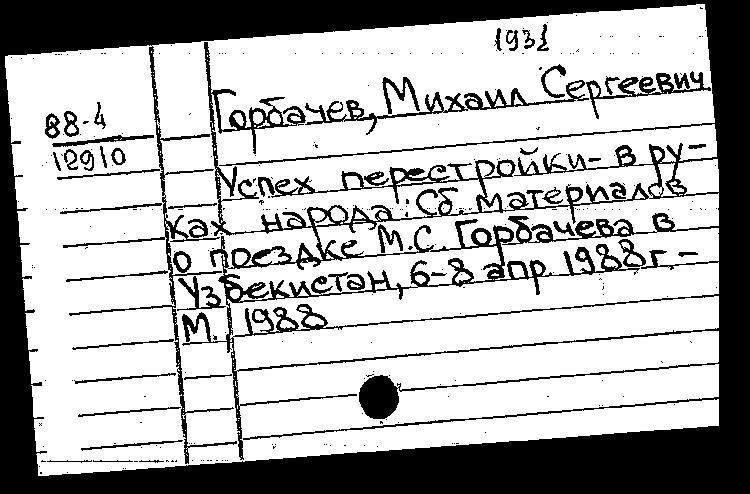 1931
88-4
12910
Горбачев, Михаил Сергеевич
Успех перестройки- в ру-
ках народа: Сб. материалов
о поездке М.С. Горбачева в
Узбекистан, 6-8 апр. 1988г. -
М., 1988